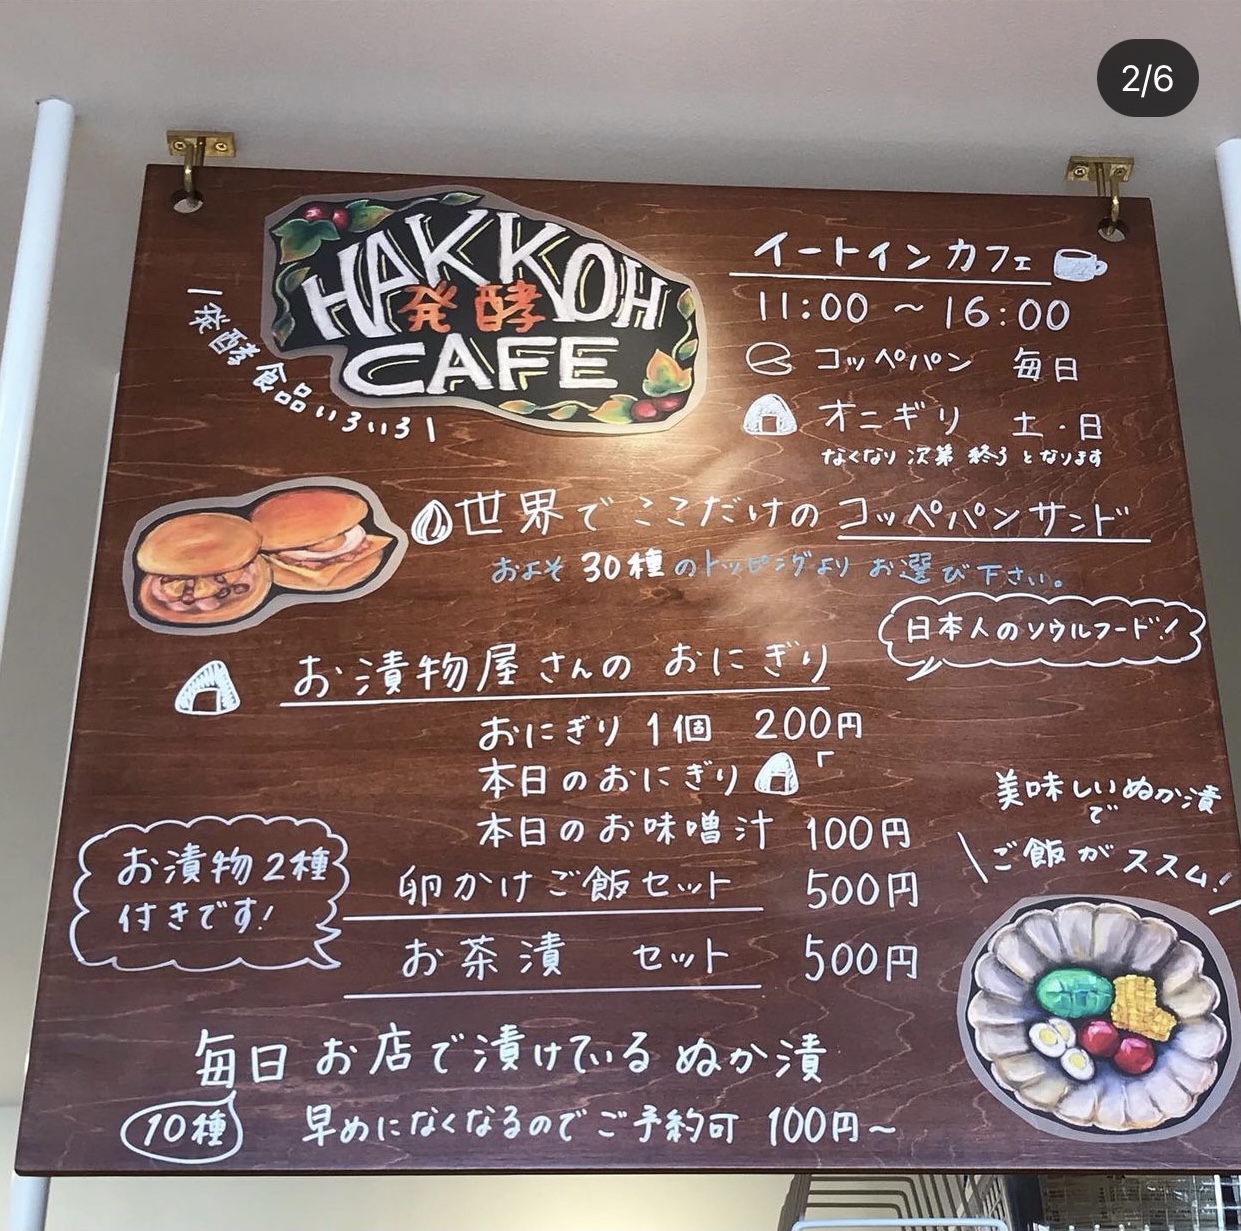 2/6
HAKKOH
発酵
CAFE
発酵食品いろいろ
イートインカフェ
11:00 ~ 16:00
コッペパン 毎日
オニギリ 土・日
なくなり次第終了となります
世界でここだけのコッペパンサンド
およそ30種のトッピングよりお選び下さい。
日本人のソウルフード!
お漬物屋さんのおにぎり
おにぎり1個 200円
本日のおにぎり「
本日のお味噌汁 100円
お漬物2種
付きです!
卵かけご飯セット 500円
お茶漬セット 500円
美味しいぬか漬
で
ご飯がススム!
毎日お店で漬けているぬか漬
10種
早めになくなるのでご予約可 100円~